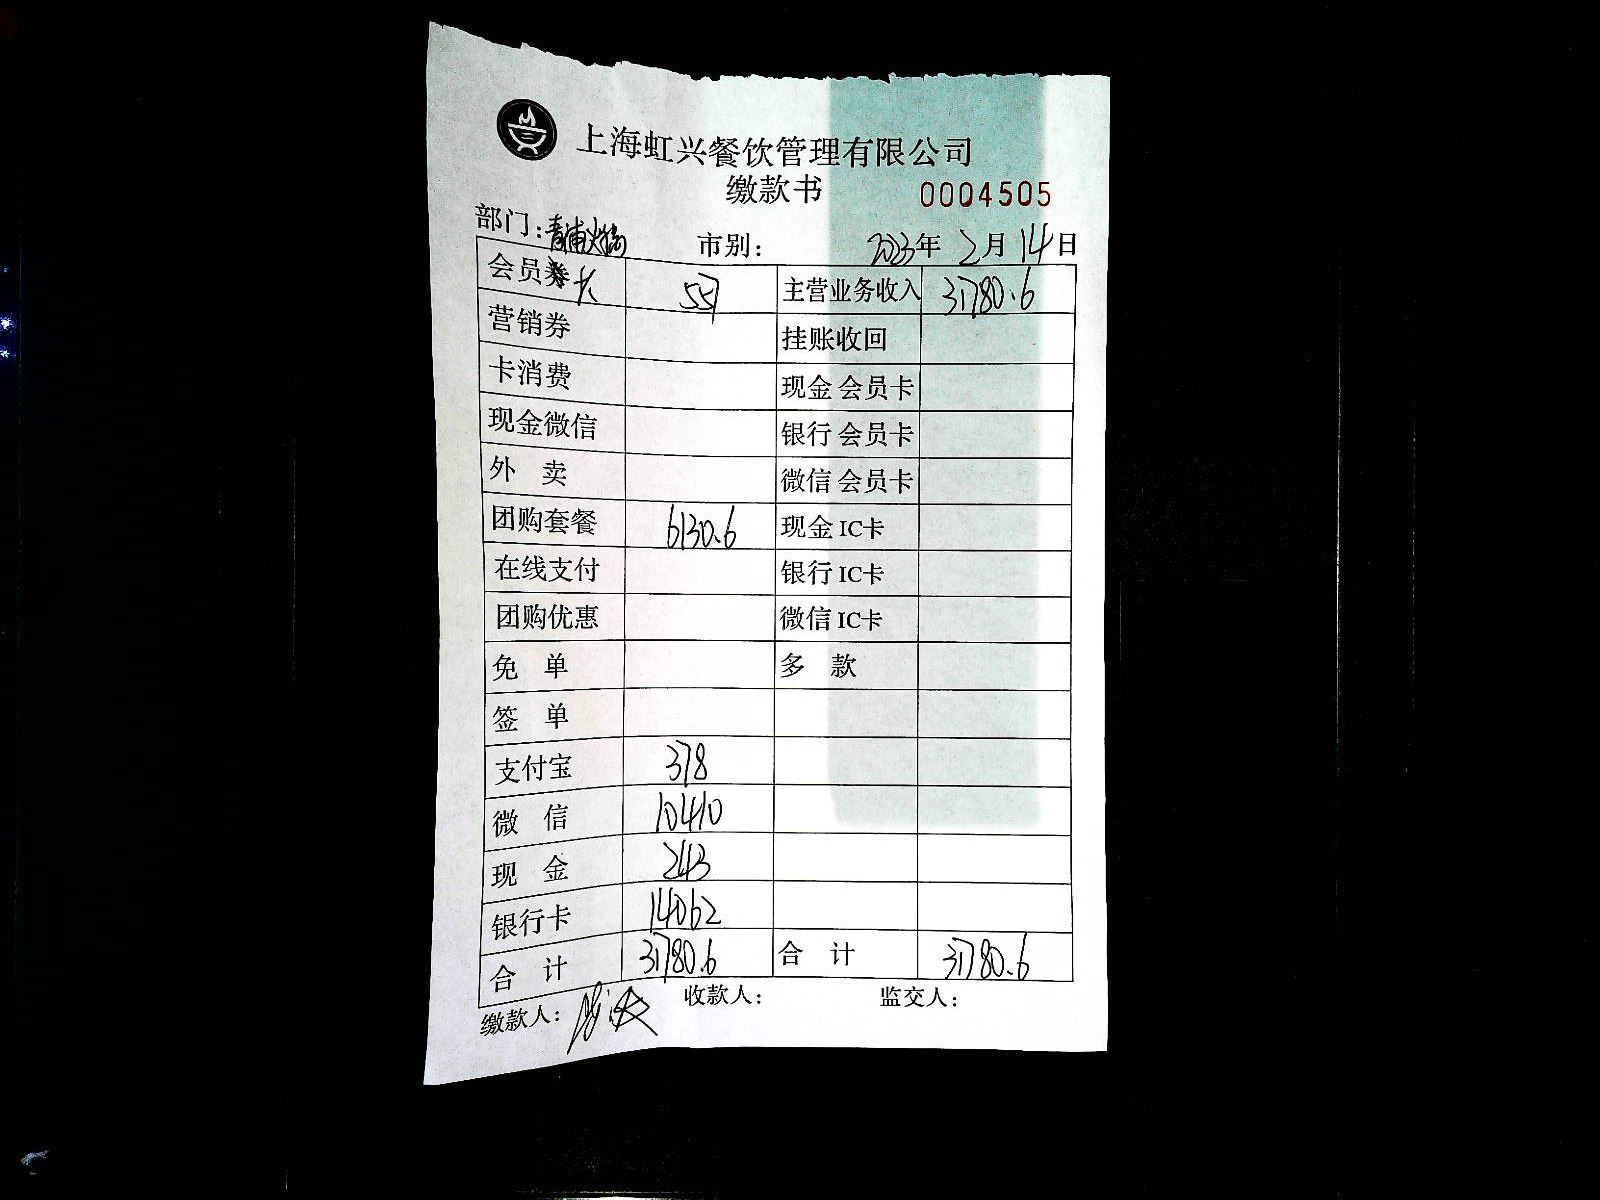 上海虹兴餐饮管理有限公司
缴款书 0004505
部门：青浦火锅 市别： 2023年 2月 14日
会员卡 557 主营业务收入 31780.6
营销券 挂账收回
卡消费 现金 会员卡
现金微信 银行 会员卡
外 卖 微信 会员卡
团购套餐 6130.6 现金 IC卡
在线支付 银行 IC卡
团购优惠 微信 IC卡
免 单 多 款
签 单
支付宝 378
微 信 10410
现 金 243
银行卡 14062
合 计 31780.6 合 计 31780.6
缴款人： 收款人： 监交人：